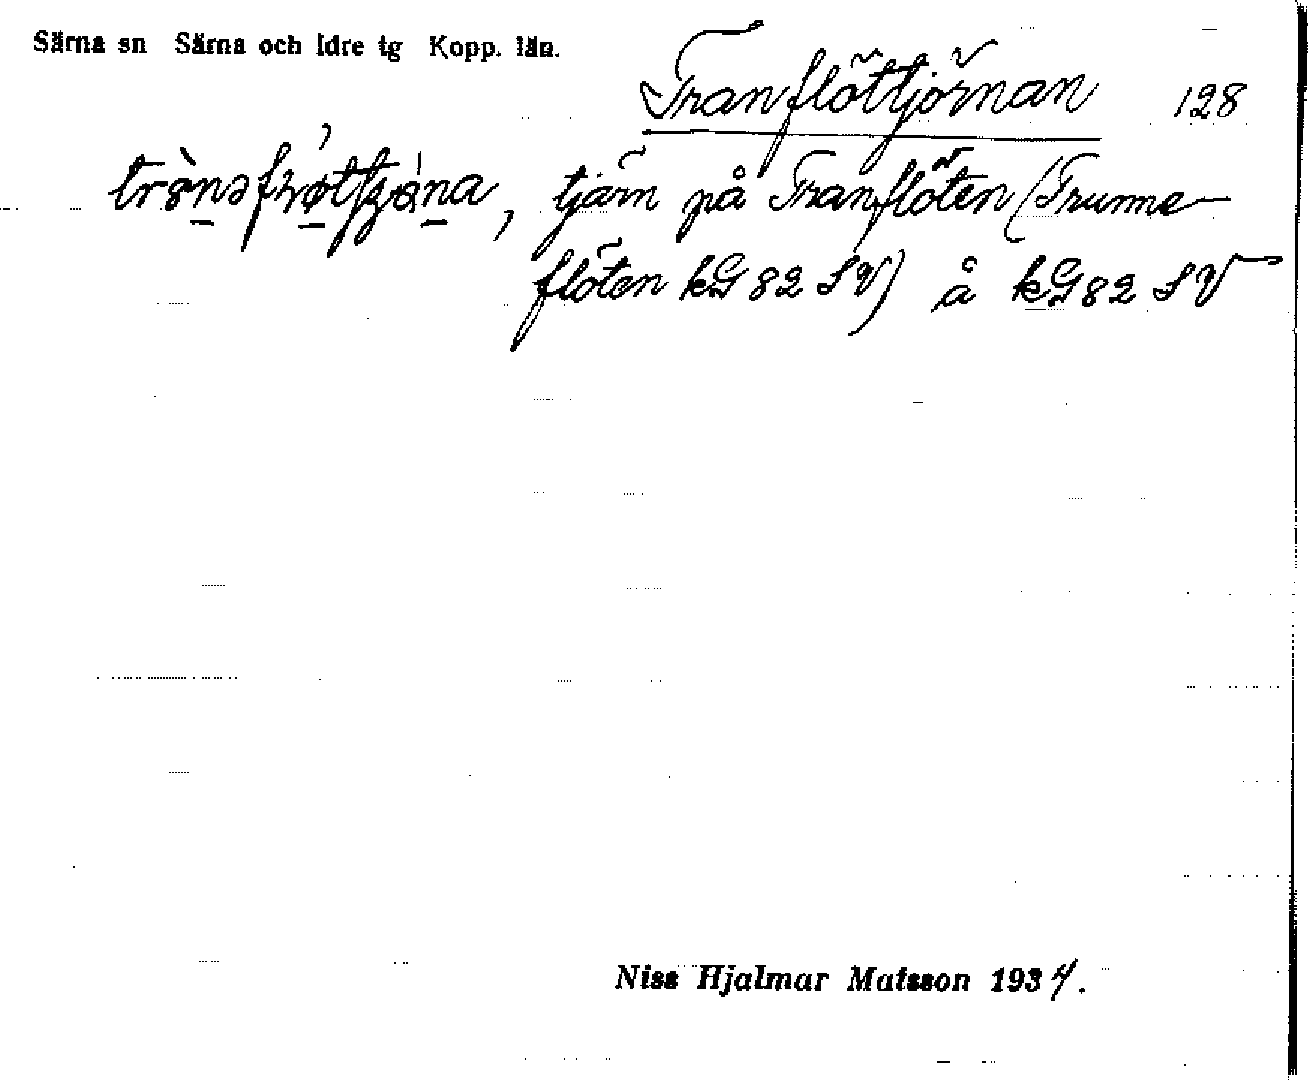 Särna sn Särna och Idre tg Kopp. län.
Tranflöttjörnan 128
tjärn på Tranflöten (Trumne-
flöten kG 82 SV) å kG 82 SV
Niss Hjalmar Matsson 1934.